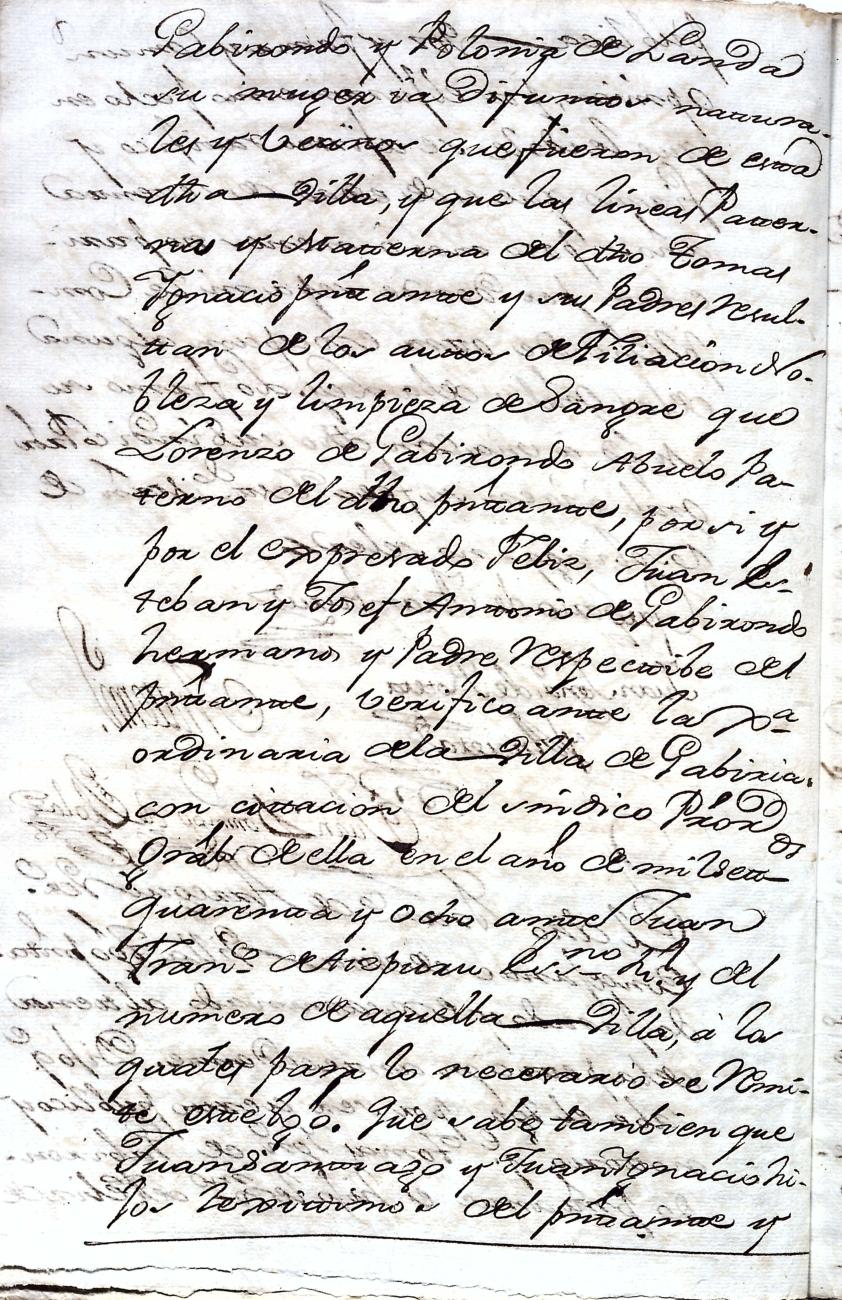 Gabirondo y Polonia de Landa
su muger ia difuntos natura-
les y Vecinos que fueron de esta
dha Villa, y que las lineas Pater-
na y Materna del dho Tomas
Ignacio pñtante y sus Padres resul-
tan de los autos de Filiacion No-
bleza y limpieza de Sangre que
Lorenzo de Gabirondo Abuelo Pa-
terno del dho pñtante, por si y
por el expresado Feliz, Juan Es-
teban y Josef Antonio de Gabirondo
hermanos y Padre respectibe del
pñtante, verifico ante la
ordinaria dela Villa de Gabiria
con citacion del sindico Prõr
Gral de ella en el año de mil sett.os
quarenta y ocho ante Juan
Fran.co de Aiepuru Ess.no R.l y del
numero de aquella Villa, à los
quales para lo necesario se remi-
te este tgo. Que sabe tambien que
Juan Santiago y Juan Ignacio hi-
jos lexitimos del pñtante y